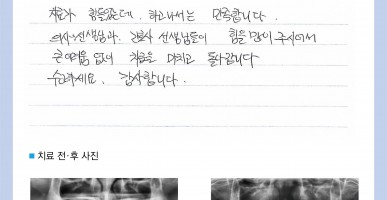 치료가 힘들었는데, 하고나서는 만족합니다.
의사선생님과 간호사 선생님들이 힘을 많이 주시어서
큰 어려움 없이 치료를 마치고 돌아갑니다
수고하세요. 감사합니다.
■ 치료 전·후 사진